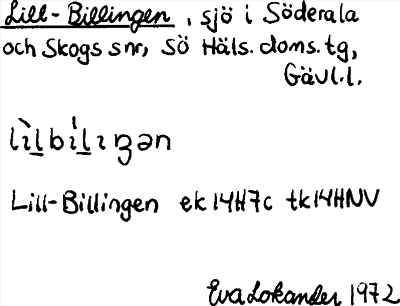 Lill-Billingen, sjö i Söderala
och Skogs snr, Sö Häls. doms. tg,
Gävl.l.
lɩ̀l̲bɩ́l̲ɩŋən
Lill-Billingen ek14H7c tk14HNV
Eva Lokander 1972